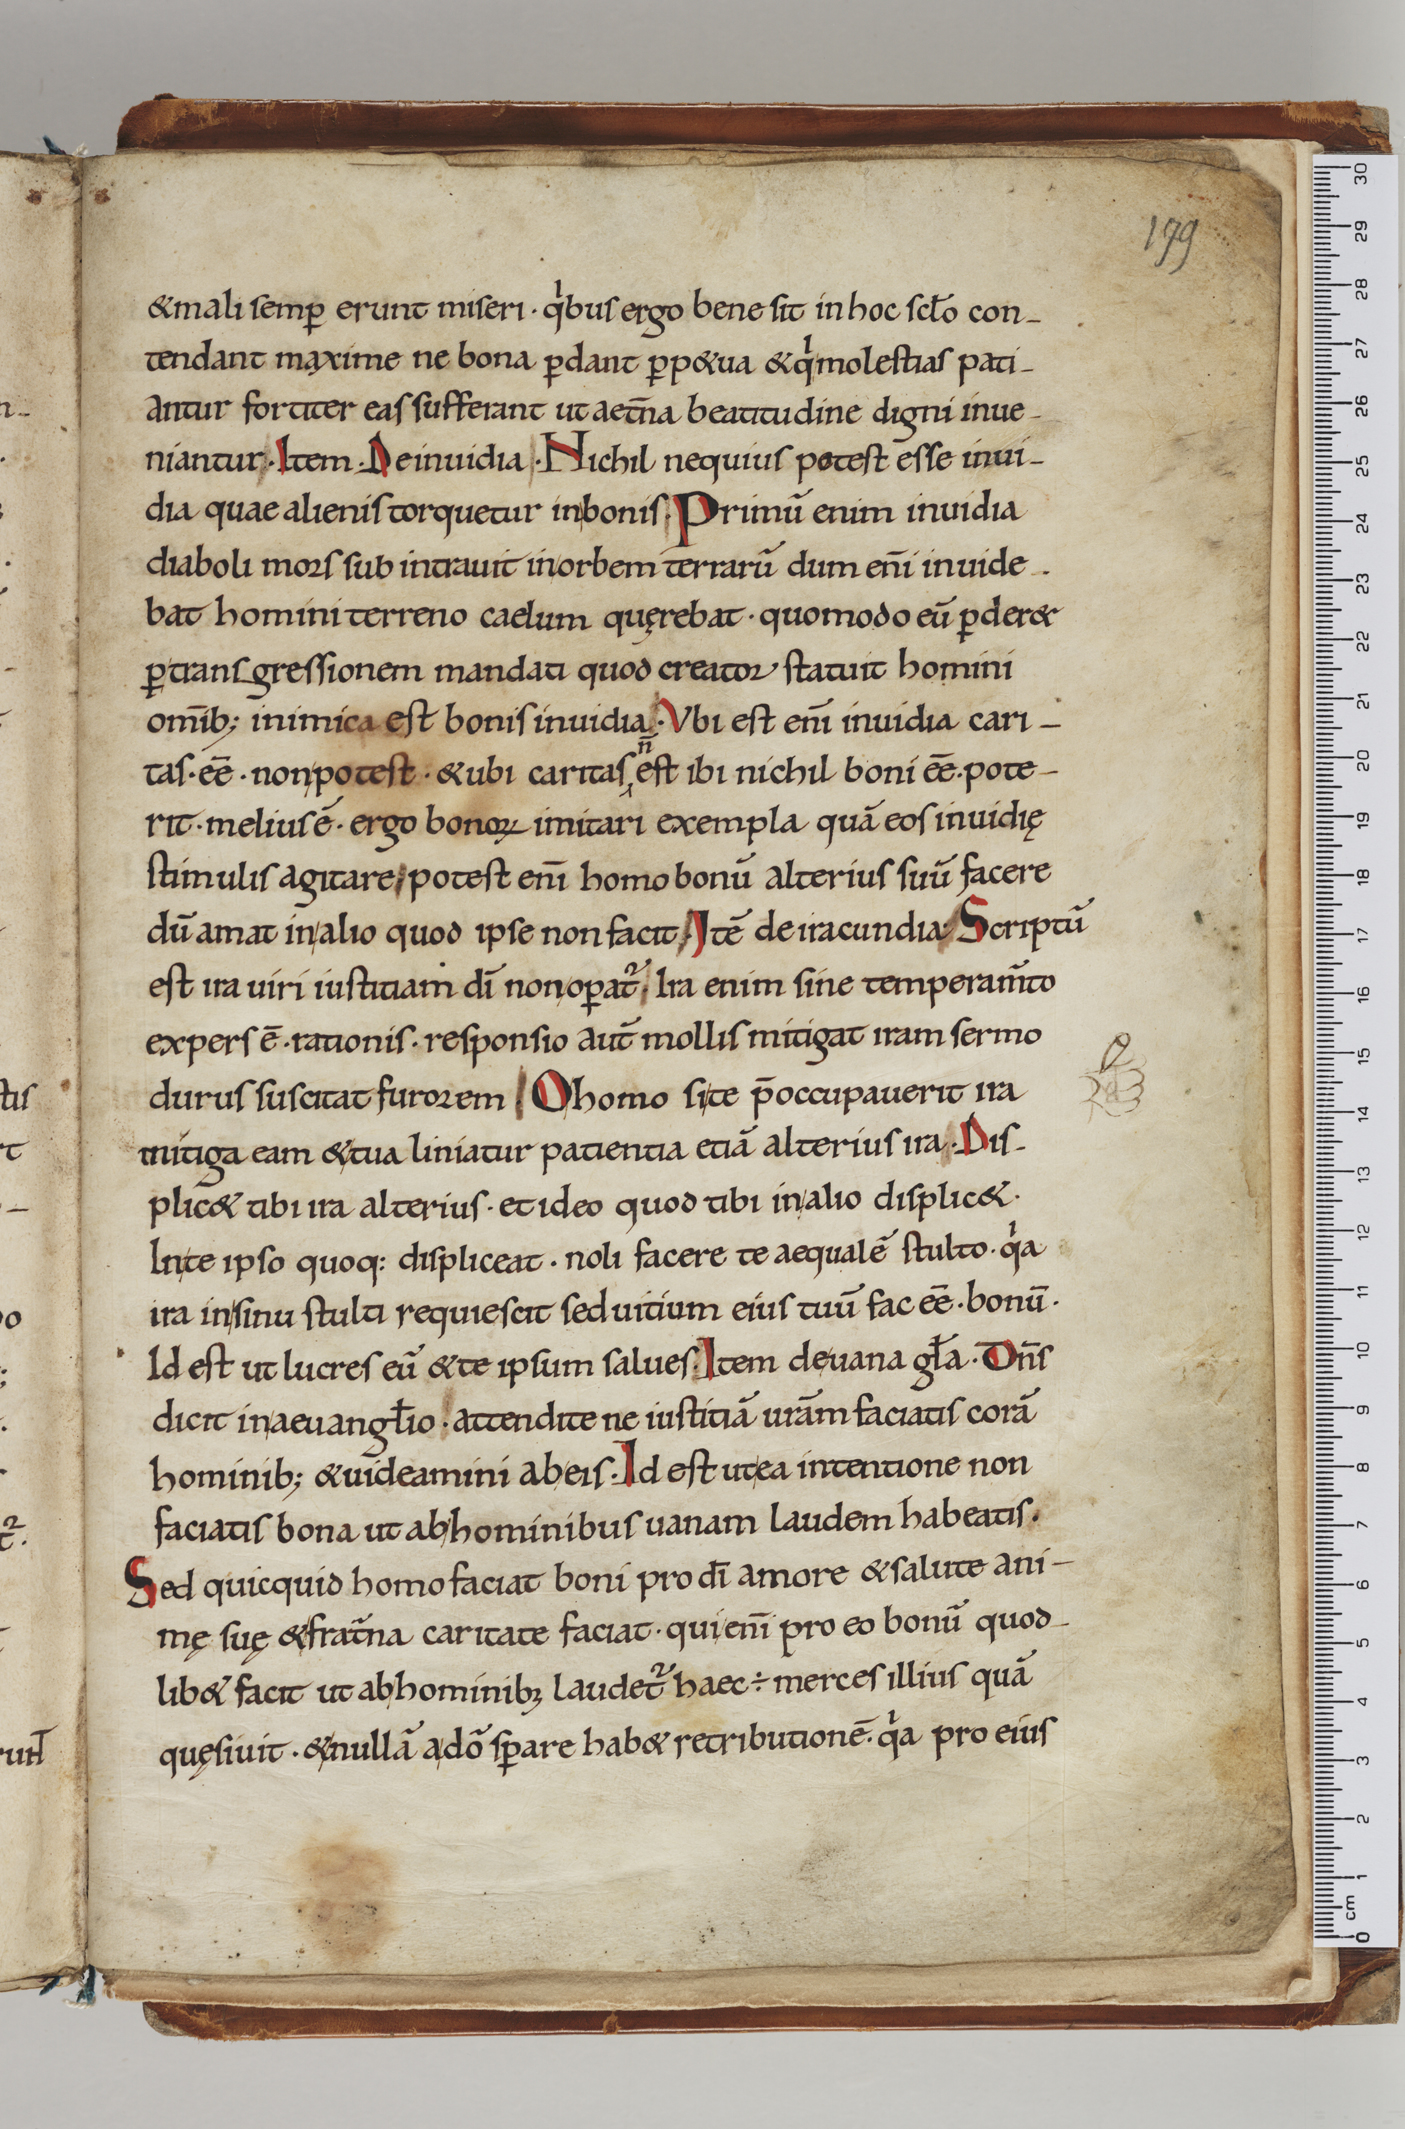 179
&mali semꝑ erunt miseri · qͥbus ergo bene sit in hoc scl̄o con-
tendant maxime ne bona ꝑdant ꝑp&ua &qͥ molestias pati-
antur fortiter eas sufferant ut aet̄na beatitudine digni inue-
niantur · Item · De inuidia · Nichil nequius potest esse inui-
dia quae alienis torquetur in bonis · Primū enim inuidia
diaboli mors sub intrauit in orbem terrarū dum en̄i inuide-
bat homini terreno caelum quęrebat · quomodo eū ꝑder&
ꝑ transgressionem mandati quod creator statuit homini
om̄ib; inimica est bonis inuidia · Vbi est en̄i inuidia cari-
tas · eē · non potest · & ubi caritas n̄ est ibi nichil boni eē · pote-
rit · melius ē · ergo bonoꝝ imitari exempla quā eos inuidię
stimulis agitare · potest en̄i homo bonū alterius suū facere
dū amat in alio quod ipse non facit · Itē de iracundia · Scriptū
est ira uiri iustitiam dī non oꝑat᷑ · Ira enim sine temperam̄to
expers ē · rationis · responsio aut̄ mollis mitigat iram sermo
durus suscitat furorem · O homo si te p̄occupauerit ira
mitiga eam & tua liniatur patientia etiā alterius ira · Dis-
plic& tibi ira alterius · et ideo quod tibi in alio displic& ·
In te ipso quoq: displiceat · noli facere te aequalē stulto · qͥa
ira in sinu stulti requiescit sed uitium eius tuū fac eē · bonū ·
Id est ut lucres eū & te ipsum salues · Item de uana gl̄a · Dn̄s
dicit in aeuangl̄io · attendite ne iustitiā urām faciatis corā
hominib; & uideamini ab eis · Id est ut ea intentione non
faciatis bona ut ab hominibus uanam laudem habeatis ·
Sed quicquid homo faciat boni pro dī amore & salute ani-
mę suę & frat̄na caritate faciat · qui en̄i pro eo bonū quod-
lib& facit ut ab hominibꝫ laudet᷑ haec ÷ merces illius quā
quęsiuit · & nullā a dō sꝑare hab& retributionē · qͥa pro eius